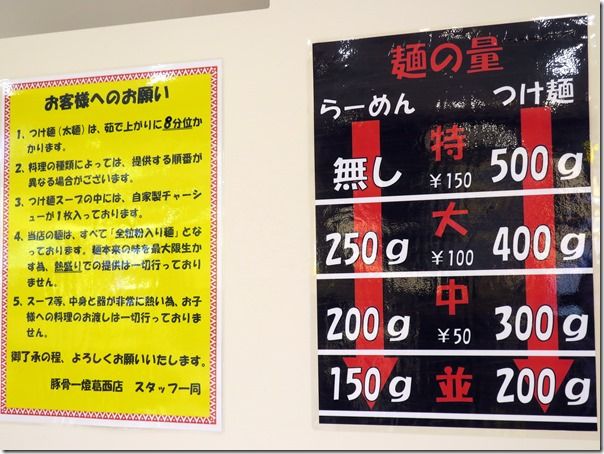 お客様へのお願い
1、つけ麺（太麺）は、茹で上がりに8分位か
かります。
2、料理の種類によっては、提供する順番が
異なる場合がございます。
3、つけ麺スープの中には、自家製チャーシ
ューが1枚入っております。
4、当店の麺は、すべて「全粒粉入り麺」とな
っております。麺本来の味を最大限生か
す為、熱盛りでの提供は一切行っており
ません。
5、スープ等、中身と器が非常に熱い為、お子
様への料理のお渡しは一切行っておりま
せん。
御了承の程、よろしくお願いいたします。
豚骨一燈葛西店 スタッフ一同
麺の量
らーめん つけ麺
無し 特 ¥150 500g
250g 大 ¥100 400g
200g 中 ¥50 300g
150g 並 200g